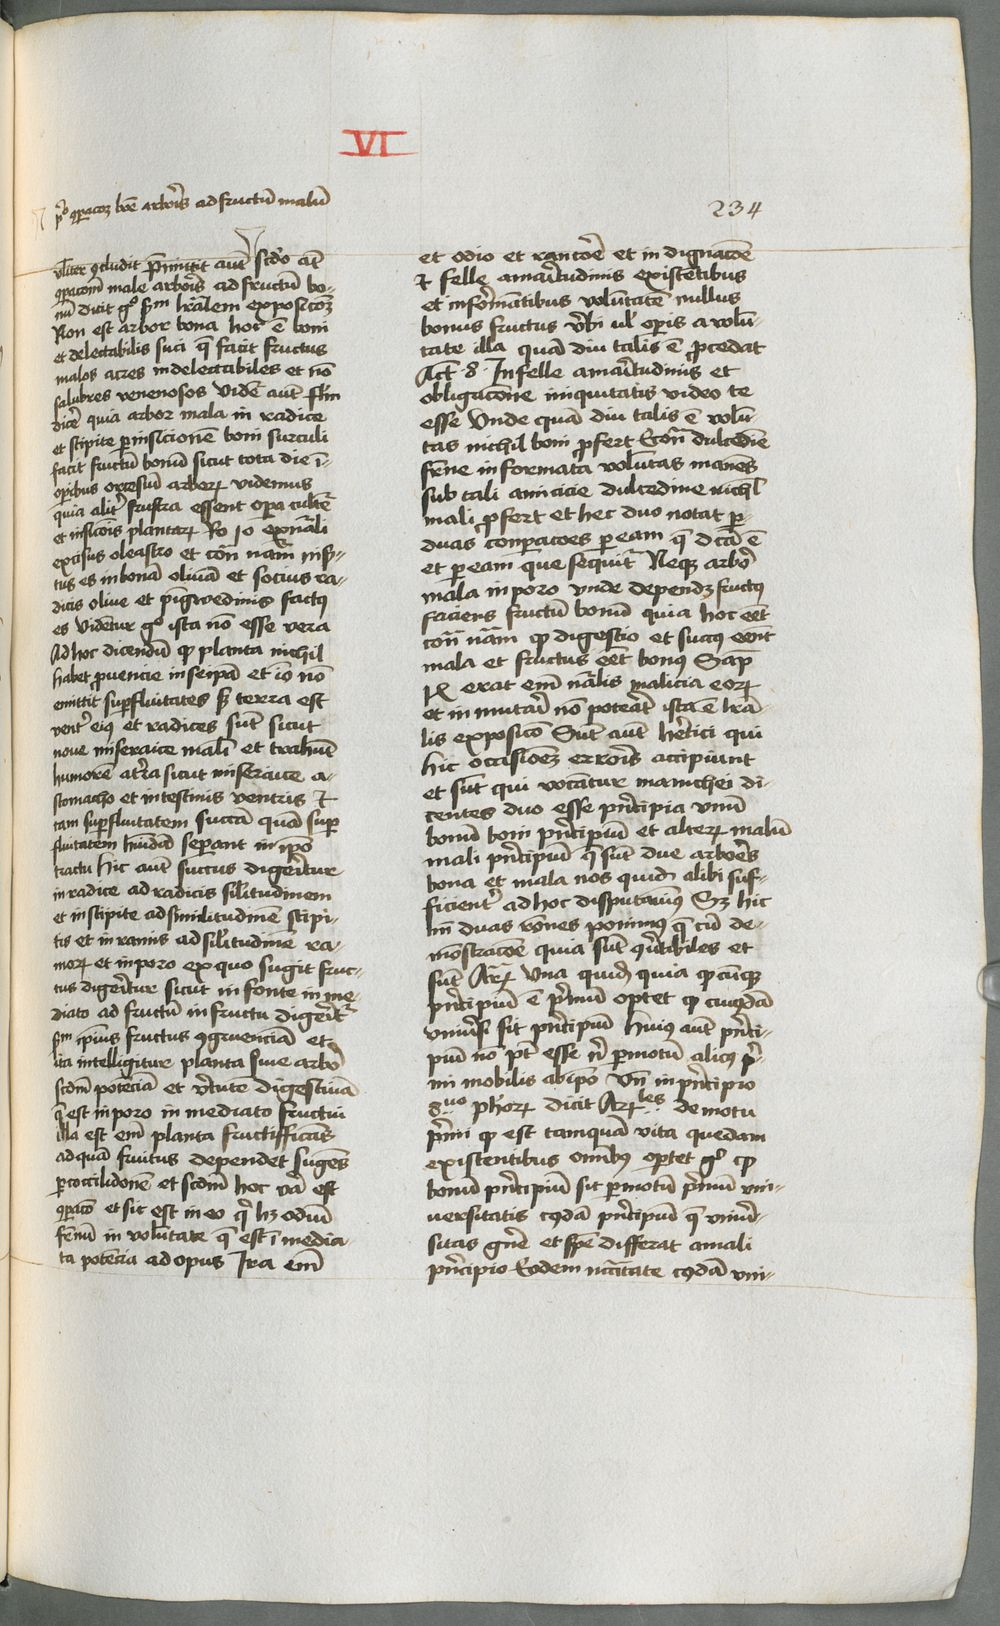 VI
p̄º ꝯparacōꝫ bōe arbōis ad fructū malū
234
vl̄iter ꝯcludit p̄mittit aut̄ scd̄o aūt
ꝯparacōm̄ male arboris ad fructū bo-
nū dicit gº sm̄ lr̄alem exposicōꝫ
Non est arbor bona hoc ē boni
et delectabilis suci q̄ facit fructus
malos acres indelectabiles et nō
salubres venenosos vidēt aut̄ fl̄m
dicē quia arbor mala in radice
et stipite per insicionē boni surculi
facit fructū bonū sicut tota die ī-
opibus ortēsiū arborꝝ videmus
quia alit̄ frustra essent opera cultᵉ
et insicōis plantarꝝ Ro 10 ex nāli
excisus oleastro et con̄ nām inser-
tus es in bonā olivā et socius ra-
dicis olive et pigwedinis factꝰ
es videntur gº ista nō esse vera
Ad hoc dicendū ꝙ planta nichil
habet ꝓuencie in seipā et iō nō
emittit suꝑfluitates sꝫ terra est
vent̄ eiꝰ et radices sūt sicut
noue miseraice mali et trahūt
humorē a t̄ra sicut miseraice a-
stomacho et intestinis ventris Et
tam suꝑfluitatem siccā quā suꝑ
fluitatem hūidā seꝑant in ipō
tractu hic aut̄ succus digeritur
in radice ad radicis sil̄itudinem
et in stipite ad similitudinē stipi-
tis et in ramis ad sil̄itudinē ra-
morꝝ et in poro ex quo sugit fruc-
tus digeritur sicut in fonte in me-
diato ad fructū in fructu digerit̄
sm̄ ipsius fructus ꝯgruenciā et
ita intelligitur planta siue arbor
scdm̄ potenciā et v̄tute digestiuā
q̄ est in poro in mediato fructui
illa est em̄ planta fructifficās
ad quā fruitus dependet sugens
ꝑ coccilidonē et scdm̄ hoc vā est
ꝯparaō et sic est in eo q̄ hꝫ odiū
frnū in voluntate q̄ est ī media-
ta potencia ad opus Ira em̄
et odio et rancoē et in dignacōe
et felle amaritudinis existentibus
et informātibus voluntatē nullus
bonus fructus v̄bi ul̄ operis a volū-
tate illa quā diu talis ē ꝓcedat
Act 8 In felle amaritudinis et
obligacōne iniquitatis video te
esse Unde quā diu talis ē volū-
tas nichil boni ꝓfert Econ̄ dulcedīe
frne informata voluntas manēs
sub tali amicicie dulcedine nichil
mali ꝓfert et hec duo notat ꝑ
duas conparacōes ꝑ eam q̄ dcā ē
et ꝑ eam que sequitᵘ Neqꝫ arbor
mala in poro unde dependꝫ fructꝰ
faciens fructū bonū quia hoc eēt
con̄ nām ꝙ digestio et succꝰ eēnt
mala et fructus eēt bonꝰ Sap
ix erat em̄ nālis malicia eorꝝ
et in mutari nō poterit ista ē lrā-
lis exposicō Sūt aut̄ hetici qui
hic ocasionē erroris accipiunt
et sūt qui vocātur manichei di-
centes duo esse pncipia vnū
bonū boni pncipiū et alterꝝ malū
mali pncipiū q̄ sūt due arbores
bona et mala nos quid̄ alibi suf-
ficient̄ ad hoc disputavimꝰ Sꝫ hic
nn̄ duas rōnes ponimus q̄ cū de-
mōstracōe quia sūt ꝯv̄tibiles et
sūt Arꝝ Una quid̄ quia ꝙcūqꝫ
pncipiū ē pmū optet ꝙ cuiꝰdā
vniuers sit pncipiū huiꝰ aut̄ pnci-
piū nō pt̄ esse n̄ ꝑ motū alicꝰ p̄-
mi mobilis ab ipō Vn̄ in pncipio
8uo ph'orꝝ dicit Arꝝles de motu
pmi ꝙ est tamquā vita quedam
existentibus omībꝰ optet gº ꝙ
bonū pncipiū sit ꝑ motū pmū vni-
versitatis cꝰdā pncipiū q̄ vniuer-
sitas gn̄e et spē differat a mali
pncipio Eodem nc̄citate cꝰdā vni-